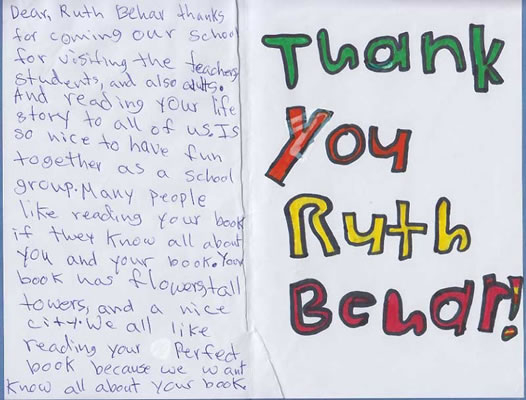 Dear, Ruth Behar thanks
for coming our school
for visiting the teachers
students, and also adults.
And reading your life
story to all of us. Is
so nice to have fun
together as a school
group. Many people
like reading your book
if they know all about
you and your book. Your
book has flowers, tall
towers, and a nice
city. We all like
reading your Perfect
book because we want
know all about your book.
Thank
You
Ruth
Behar!